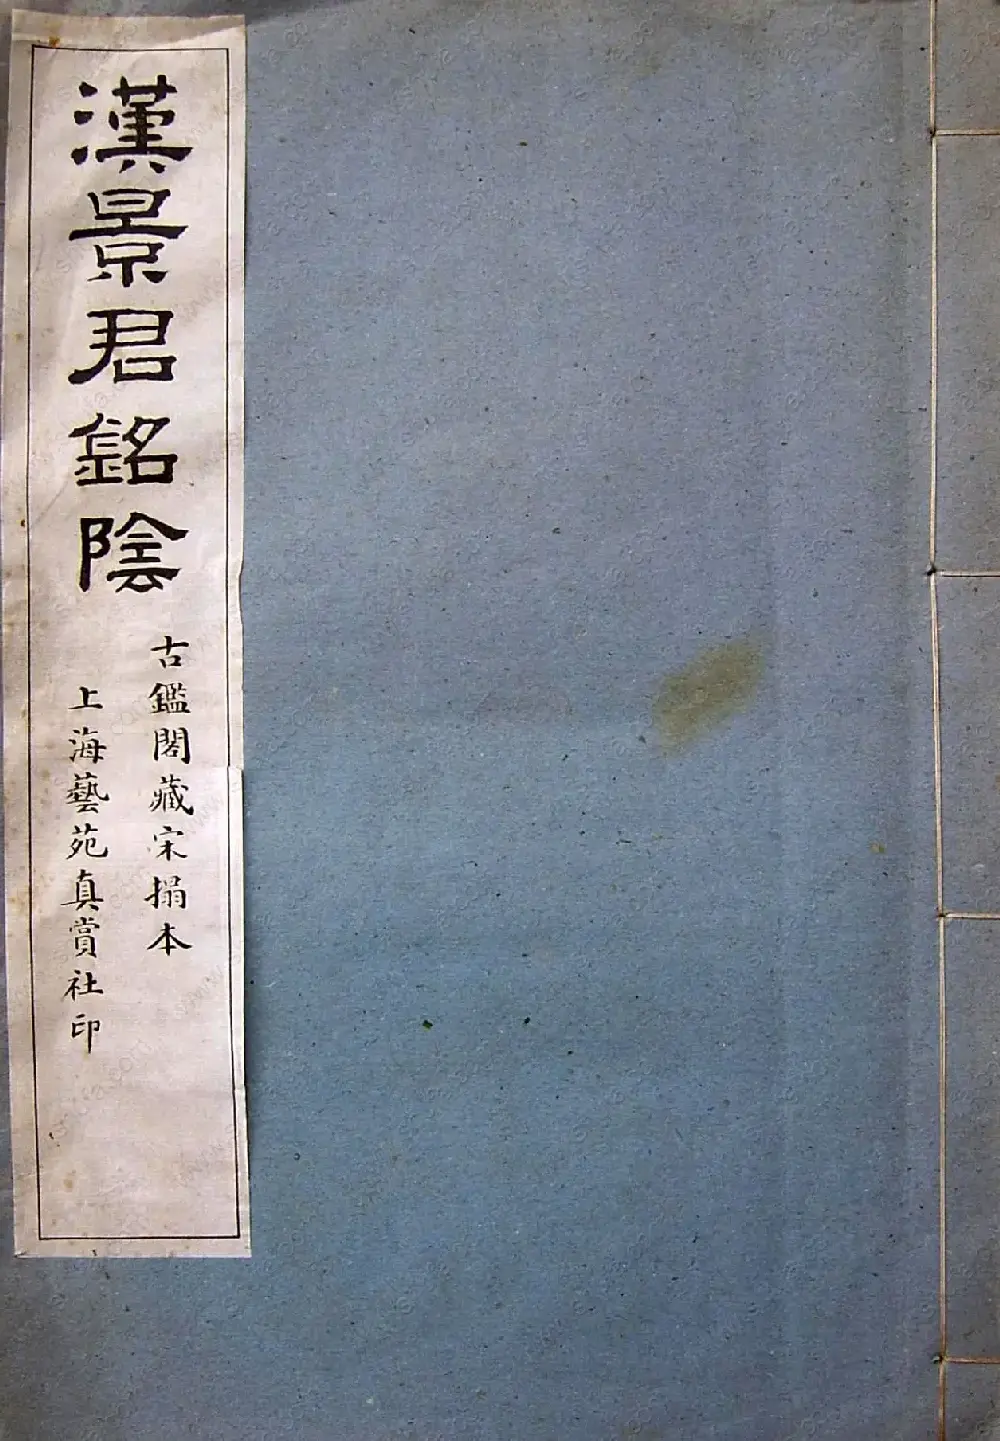 漢景君銘陰
古鑑閣藏宋搨本
上海藝苑真賞社印